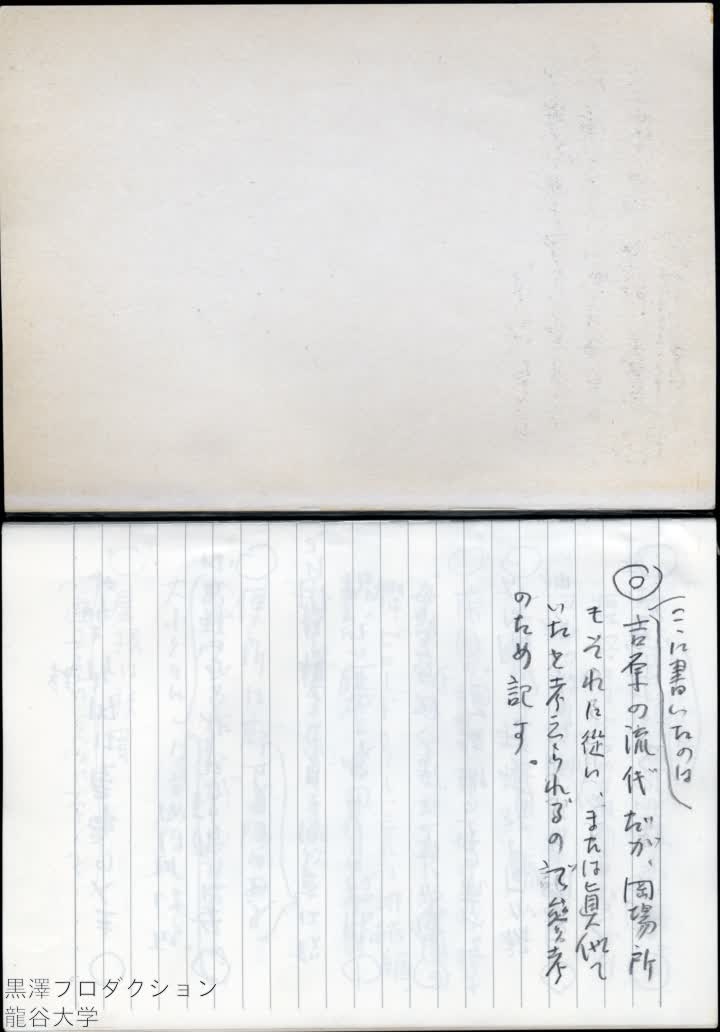 (ここに書いたのは)
◎吉原の流代だが、岡場所
もそれに従い、または眞似て
いたと考えられるので
のため記す。
黒澤プロダクション
龍谷大学